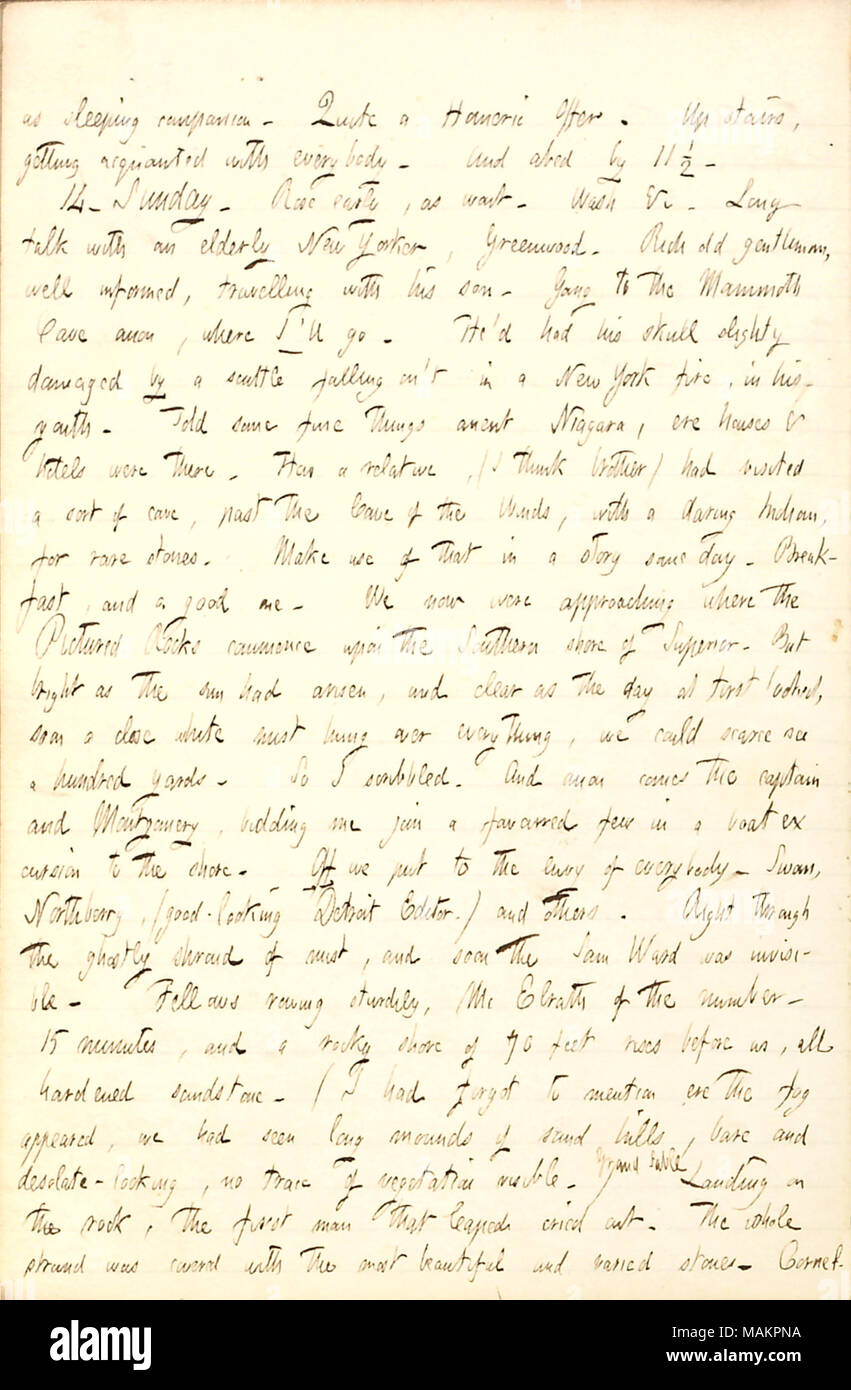 as sleeping companion - Quite a Homeric offer. Up stairs,
getting acquainted with everybody - And abed by 11 ½ -
14 - Sunday - Rose early, as wont - Wash &c - Long
talk with an elderly New Yorker, Greenwood - Rich old gentleman,
well informed, travelling with his son - Going to the Mammoth
Cave anon, where I'll go - He'd had his skull slighty
damaged by a scuttle falling on't in a New York fire, in his
youth - Told some fine things anent Niagara, ere houses &
hotels were there - How a relative, (I think brother) had visited
a sort of cave, past the Cave of the Winds, with a daring Indian,
for rare stones. Make use of that in a story some day - Break-
fast, and a good one - We now were approaching where the
Pictured Rocks commence upon the Southern shore of Superior - But
bright as the sun had arisen, and clear as the day at first looked,
soon a close white mist hung over everything, we could scarce see
a hundred yards - So I scribbled. And anon comes the captain
and Montgomery, bidding me join a favarred few in a boat ex
cursion to the shore - Off we put to the envy of everybody - Swan,
Northberry, (good-looking Detroit Editor.) and others. Right through
the ghostly shroud of mist, and soon the Sam Ward was invisi-
ble - Fellows rowing sturdily, Mc Elrath of the number -
15 minutes, and a rocky shore of 70 feet rises before us, all
hardened sandstone - (I had forgot to mention ere the fog
appeared, we had seen long mounds of sand hills, bare and
desolate-looking, no trace of vegetation visible - Grand Sable Landing on
the rock, the first man that leaped cried out - The whole
strand was covered with the most beautiful and varied stones - Cornel-
alamy
Image ID: MAKPNA
www.alamy.com